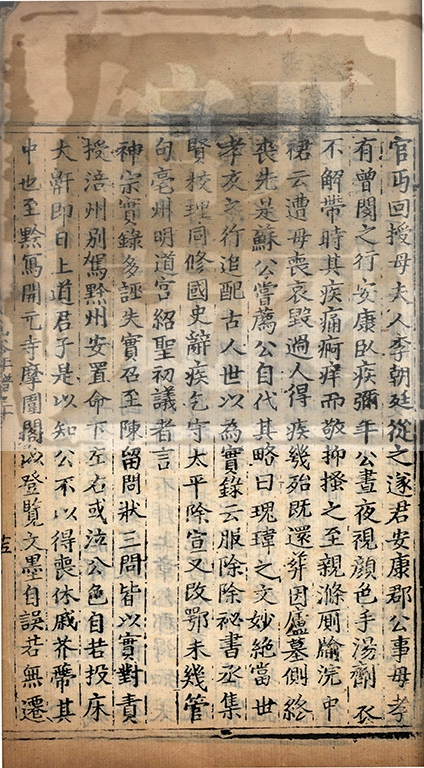 官丐回授母夫人李朝廷從之遂君安康郡公事母孝
有曾閔之行安康臥疾彌年公晝夜視顏色手湯劑
不解帶時其疾痛痾痒而敬抑搔之至親滌厠牏浣中
裙云遭母喪哀毀過人得疾幾殆既還葬因廬墓側終
喪先是蘇公嘗薦公自代其略曰瑰瑋之文妙絶當世
孝友之行追配古人世以為實錄云服除除祕書丞集
賢校理同修國史辭疾乞守太平除宣又改鄂未幾管
句亳州明道宮紹聖初議者言
神宗實錄多誣失實召至陳留問狀三問皆以實對責
授涪州別駕黔州安置命下左右或泣公色自若投床
大鼾即日上道君子是以知公不以得喪休戚芥蔕其
中也至黔寓開元寺摩圍閣以登覽文墨自娛若無遷